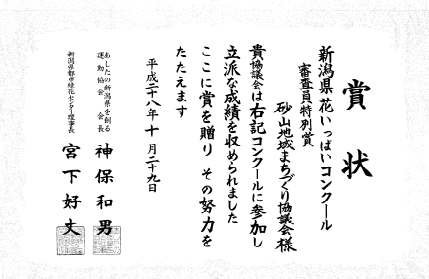 賞状
新潟県 花いっぱいコンクール
審査員特別賞
砂山地域まちづくり協議会様
貴協議会は右記コンクールに参加し
立派な成績を収められました
ここに賞を贈り その努力を
たたえます
平成二十八年十月二十九日
あしたの新潟県を創る
運動協会 会長
神保和男
新潟県都市緑花センター理事長
宮下好文